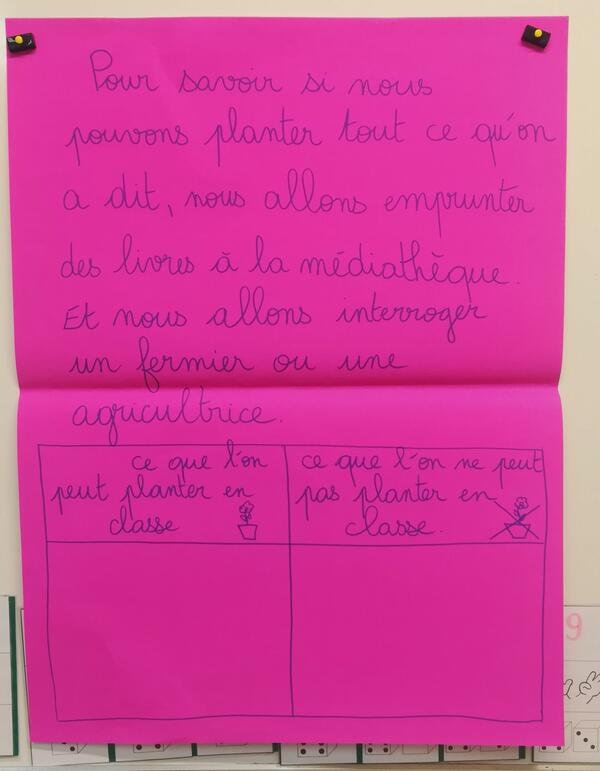 Pour savoir si nous
pouvons planter tout ce qu'on
a dit, nous allons emprunter
des livres à la médiathèque.
Et nous allons interroger
un fermier ou une
agricultrice.
ce que l'on
peut planter en
classe
ce que l'on ne peut
pas planter en
classe.
9